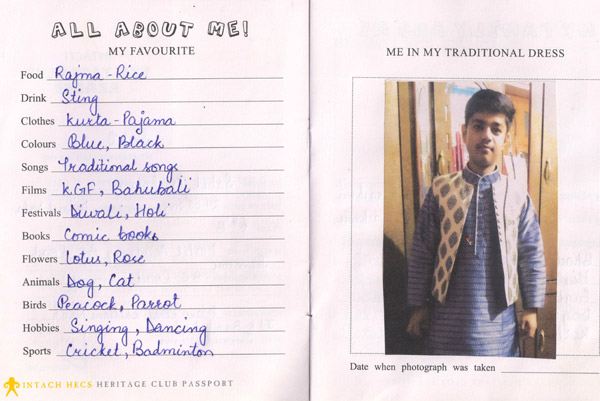 ALL ABOUT ME!
MY FAVOURITE
Food Rajma-Rice
Drink Sting
Clothes Kurta-Pajama
Colours Blue, Black
Songs Traditional songs
Films KGF, Bahubali
Festivals Diwali, Holi
Books Comic books
Flowers Lotus, Rose
Animals Dog, Cat
Birds Peacock, Parrot
Hobbies Singing, Dancing
Sports Cricket, Badminton
INTACH HECS HERITAGE CLUB PASSPORT
ME IN MY TRADITIONAL DRESS
Date when photograph was taken